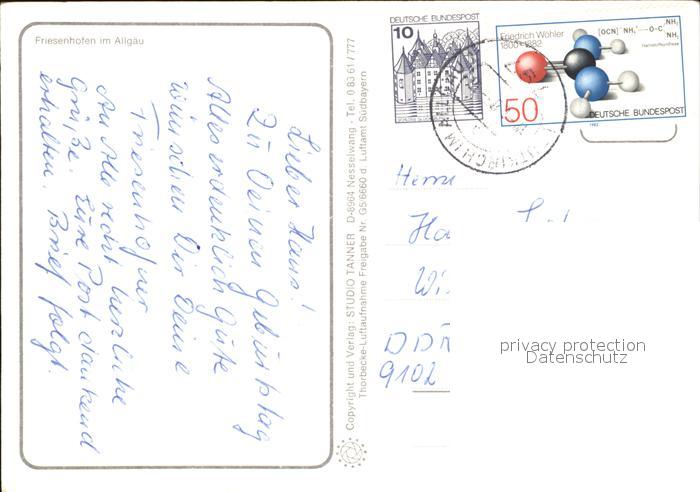 Friesenhofen im Allgäu
Lieber Hans!
Zu Deinem Geburtstag
Alles erdenklich Gute
wünschen Dir Deine
Friesenhofner
An Alle recht herzliche
Grüße. Eure Post dankend
erhalten. Brief folgt.
Copyright und Verlag: STUDIO TANNER D-8964 Nesselwang · Tel. 0 83 61 / 777
Thorbecke-Luftaufnahme Freigabe Nr. G5/6660 d. Luftamt Südbayern
DEUTSCHE BUNDESPOST
10
Friedrich Wöhler
1800-1882
50
Harnstoffsynthese
DEUTSCHE BUNDESPOST
1982
LEUTKIRCH IM ALLGÄU
Herrn
DDR
9102
privacy protection
Datenschutz